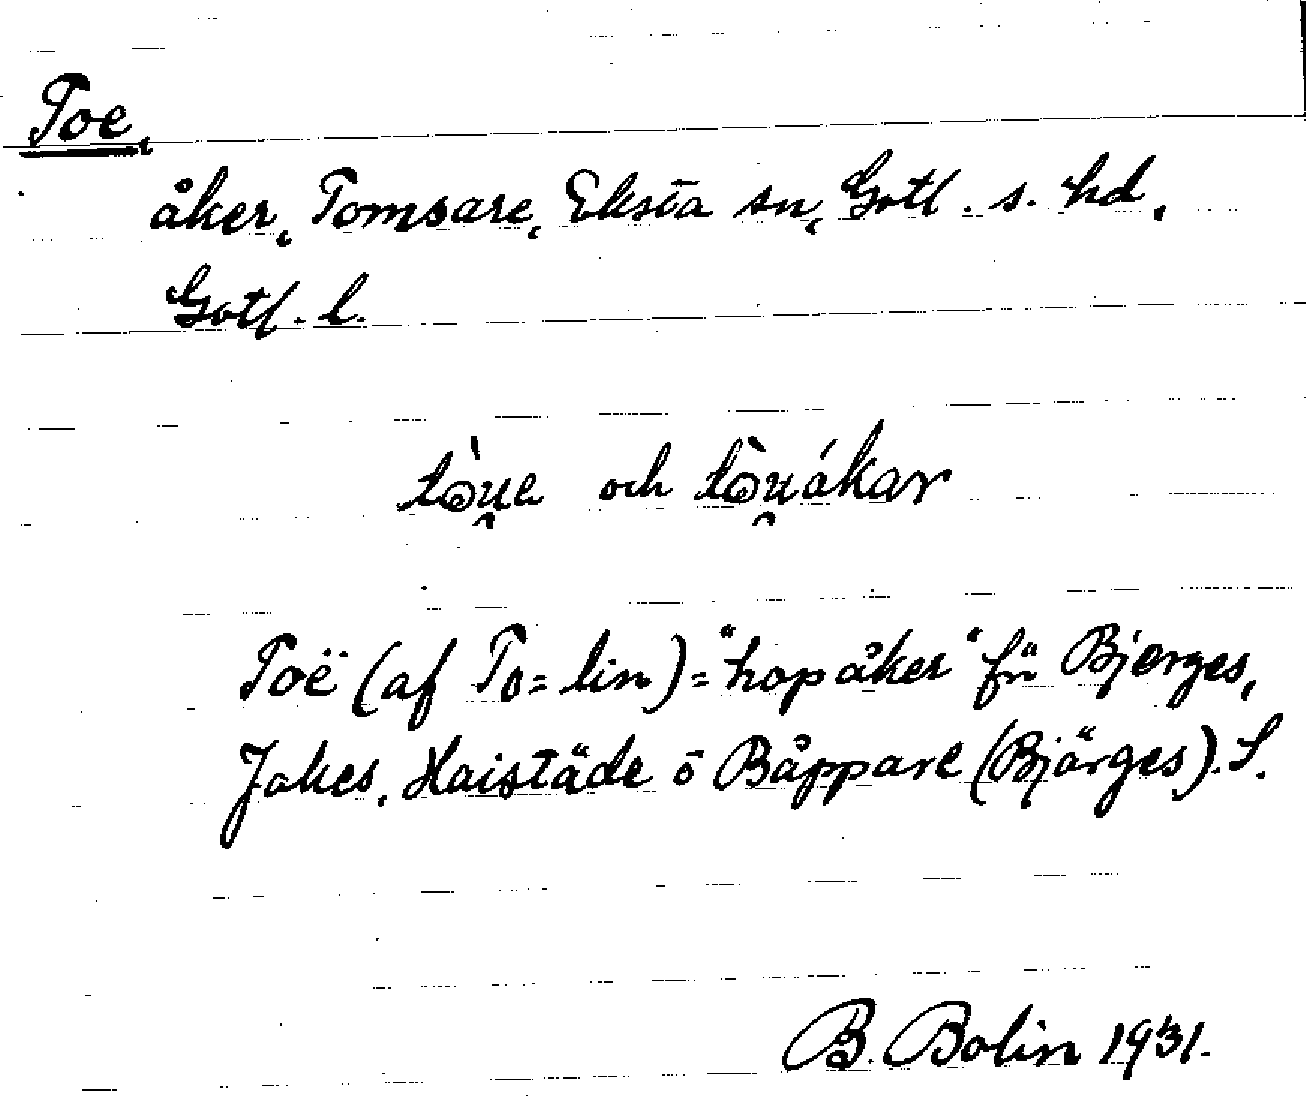 Toe,
åker, Tomsare, Eksta sn, Gotl. s. hd,
Gotl. l.
tòu̯e och tòu̯ákar
Toë (af To = lin) = "hopåker" fn Bjerges,
Jakes, Haistäde ō Båppare (Bjärges). S.
B. Bolin 1931.